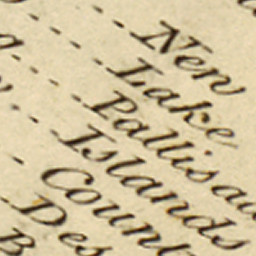 New
Lake
Pallisa
Islands
Coun
Des
B